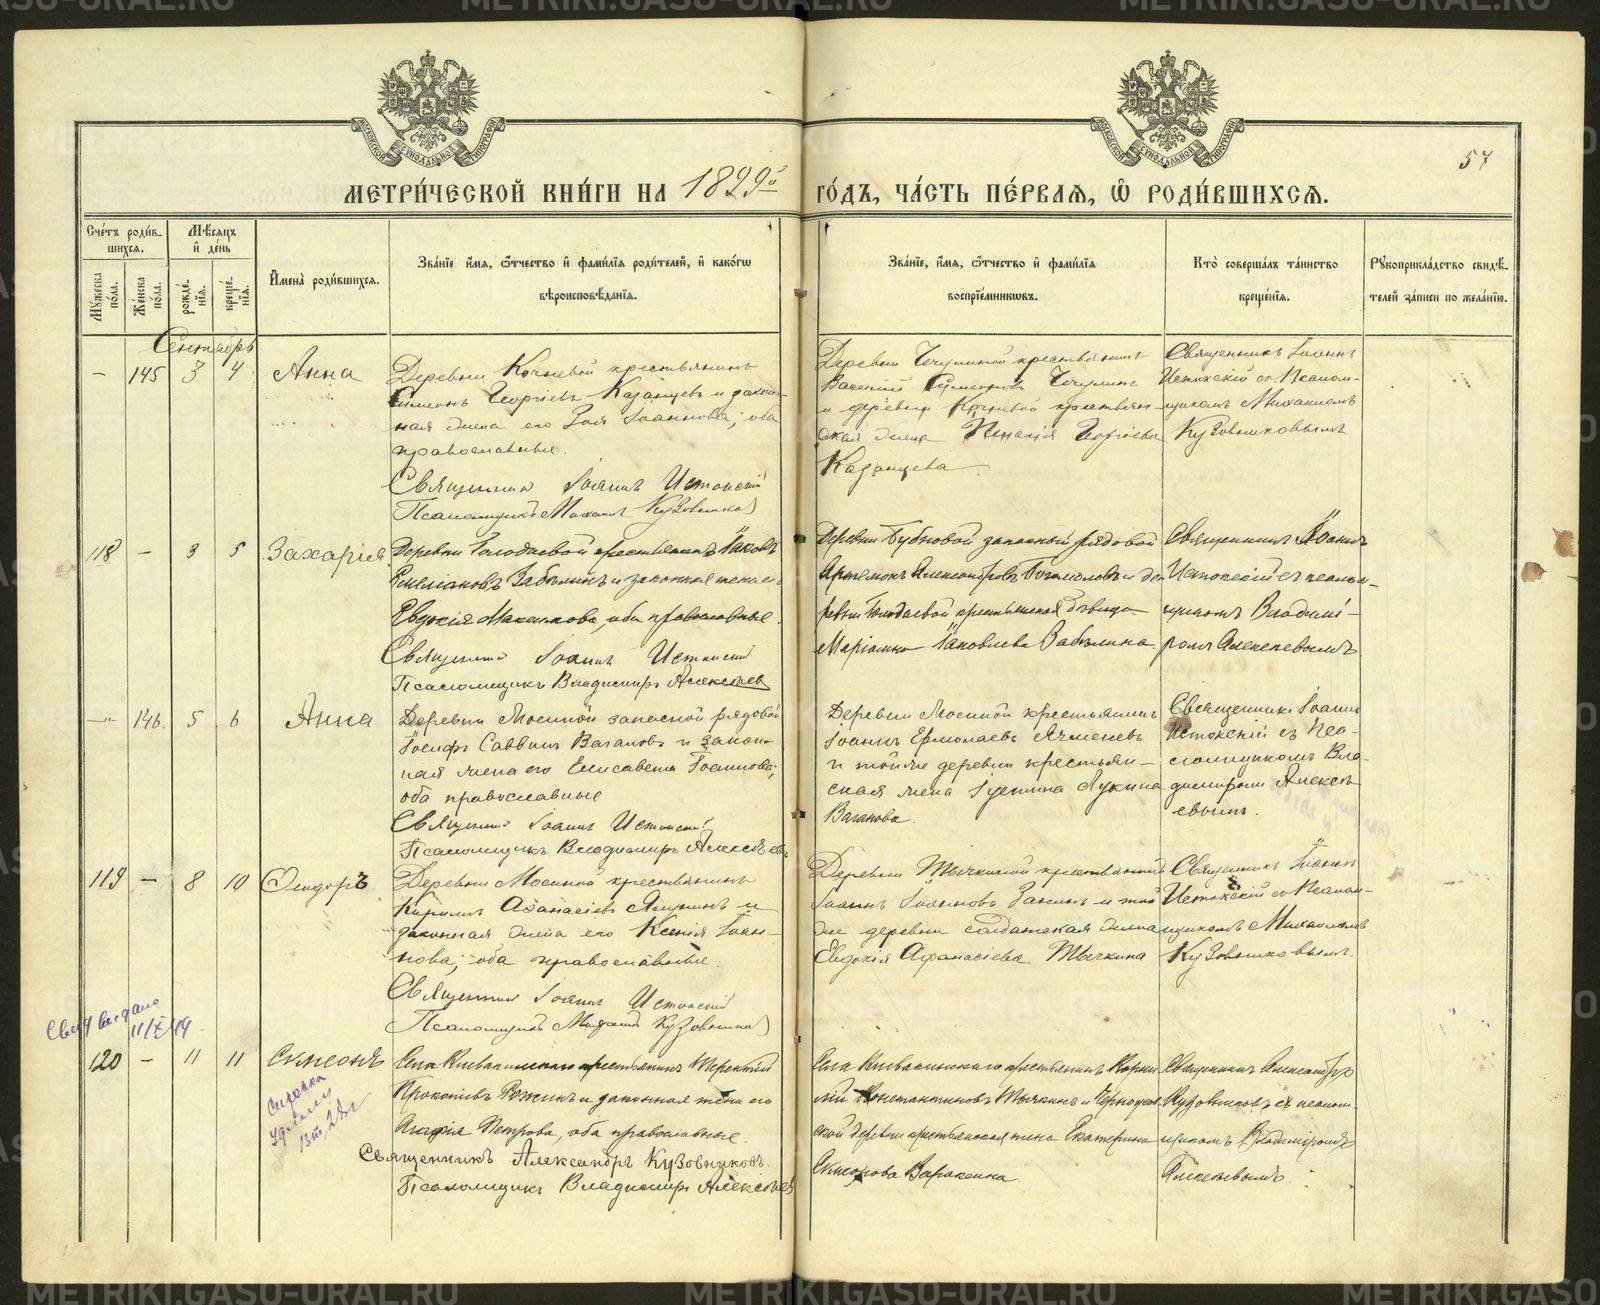 METRIKI.GASO-URAL.RU
57
МЕТРИ́ЧЕСКОЙ КНИ́ГИ НА 1899й ГО́ДЪ, ЧА́СТЬ ПЕ́РВАѦ, Ѿ РОДИ́ВШИХСѦ.
Сче́тъ роди́в-
шихся.
Мѣ́сяцъ
и̂ де́нь
Му́жеска по́ла.
Же́нска по́ла.
рожде́-
нїѧ.
креще́-
нїѧ.
И̂мена̀ роди́вшихся.
Зва́нїе и̂́мѧ, ѻ҆́тчество и̂ фами́лїѧ роди́телей, и̂ како́гѡ
вѣроисповѣ́данїѧ.
Зва́нїе, и̂́мѧ, ѻ҆́тчество и̂ фами́лїѧ
воспрїе́мникѡвъ.
Кто̀ соверша́лъ та́инство
креще́нїѧ.
Рꙋкоприкла́дство свидѣ́-
телей за́писи по жела́нїю.
Сентябрь
— 145 3 4 Анна
Деревни Кочневой крестьянинъ
Симеонъ Георгіевъ Казанцевъ и закон-
ная жена его Зоя Іоаннова; оба
православные.
Священникъ Іоаннъ Истокскій
Псаломщикъ Михаилъ Кузовниковъ
крестьянинъ
Василій Симеоновъ
и деревни Кочневой крестьян-
ская жена Георгіева
Казанцева
Священникъ Іоаннъ
Истокскій съ псалом-
щикомъ Михаиломъ
Кузовниковымъ
118 — 3 5 Захарія
Деревни Голодаевой крестьянинъ Іаковъ
Емеліановъ Забѣлинъ и законная жена его
Евдокія Максимова, оба православные.
Священникъ Іоаннъ Истокскій
Псаломщикъ Владимиръ Алексѣевъ
Деревни Бубновой запасный рядовой
Александровъ Богомоловъ и де-
ревни Голодаевой крестьянская дѣвица
Іаковлева Забѣлина.
Священникъ Іоаннъ
Истокскій съ псалом-
щикомъ Владимі-
ромъ Алексѣевымъ
— 146 5 6 Анна
Деревни Мосиной запасной рядовой
Іосифъ Саввинъ Вагановъ и закон-
ная жена его Елисавета Іоаннова;
оба православные
Священникъ Іоаннъ Истокскій
Псаломщикъ Владимиръ Алексѣевъ
Деревни Мосиной крестьянинъ
Іоаннъ Ермолаевъ Ячменевъ
и той же деревни крестьян-
ская жена Іустина Лукина
Ваганова.
Священникъ Іоаннъ
Истокскій съ пса-
ломщикомъ Вла-
димиромъ Алексѣ-
евымъ.
119 — 8 10 Ѳеодоръ
Деревни Мосиной крестьянинъ
Кириллъ Аѳанасіевъ и
законная жена его Ксенія Іоан-
нова; оба православные.
Священникъ Іоаннъ Истокскій
Псаломщикъ Михаилъ Кузовниковъ
Деревни Тычкиной крестьянинъ
Іоаннъ Іоанновъ и той
же деревни солдатская жена
Евдокія Аѳанасіева Тычкина
Священникъ Іоаннъ
Истокскій съ псалом-
щикомъ Михаиломъ
Кузовниковымъ.
выдано
11/X 49
120 — 11 11 Симеонъ
справка
Села крестьянинъ Терентій
Прокопіевъ Рожинъ и законная жена его
Агафія Петрова, оба православные.
Священникъ Александръ Кузовниковъ.
Псаломщикъ Владимиръ Алексѣевъ
Села крестьянинъ Корни-
лій Константиновъ Тычкинъ и
ской деревни крестьянская жена Екатерина
Симонова Вараксина
Священникъ Александръ
Кузовниковъ съ псалом-
щикомъ Владиміромъ
Алексѣевымъ.